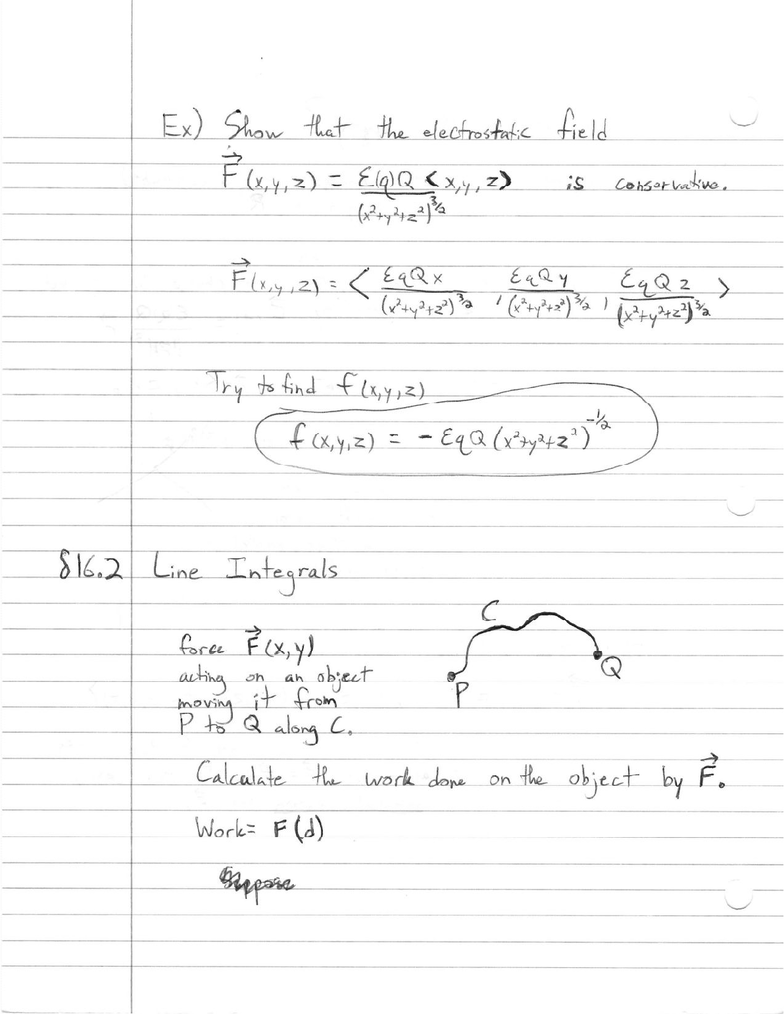 Ex) Show that the electrostatic field
F⃗(x,y,z) = ε(q)Q <x,y,z> / (x²+y²+z²)^3/2 is conservative.
F⃗(x,y,z) = < εqQx / (x²+y²+z²)^3/2 , εqQy / (x²+y²+z²)^3/2 , εqQz / (x²+y²+z²)^3/2 >
Try to find f(x,y,z)
f(x,y,z) = - εqQ (x²+y²+z²)^-1/2
§16.2 Line Integrals
C
force F⃗(x,y)
acting on an object
moving it from
P to Q along C.
P
Q
Calculate the work done on the object by F⃗.
Work= F(d)
Suppose